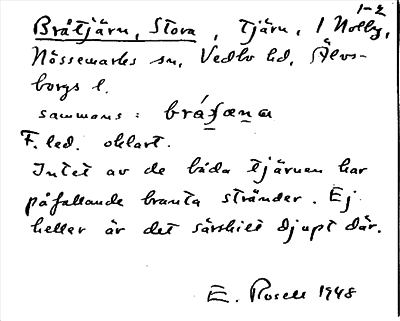 1-2
Bråtjärn, Stora, tjärn, 1 Nolby,
Nössemarks sn, Vedbo hd, Älvs-
borgs l.
sammans:
F. led. oklart.
Intet av de båda tjärnen har
påfallande branta stränder. Ej
heller är det särskilt djupt där.
E. Rosell 1948